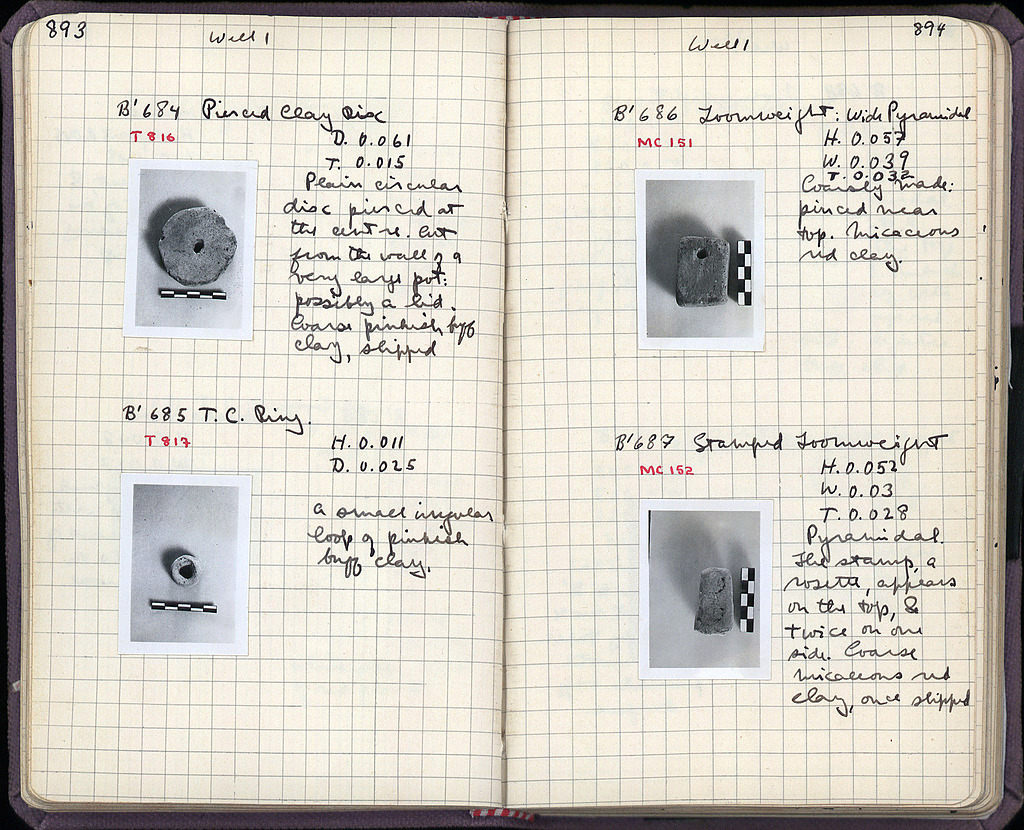 893
Well 1
B' 684 Pierced Clay Disc
T 816
D. 0.061
T. 0.015
Plain circular
disc pierced at
the centre. Cut
from the wall of a
very large pot:
possibly a lid.
Coarse pinkish buff
clay, slipped
B' 685 T.C. Ring.
T 817
H. 0.011
D. 0.025
A small irregular
loop of pinkish
buff clay.
894
Well 1
B' 686 Loomweight: Wide Pyramidal
MC 151
H. 0.057
W. 0.039
T. 0.032
Coarsely made:
pierced near
top. Micaceous
red clay.
B' 687 Stamped Loomweight
MC 152
H. 0.052
W. 0.03
T. 0.028
Pyramidal.
The stamp, a
rosette, appears
on the top, &
twice on one
side. Coarse
micaceous red
clay, once slipped